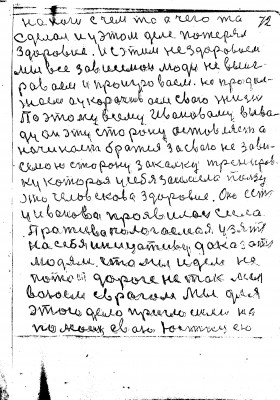 72
на ноги с чем то а чего та
сделал и у этом деле потерял
здоровие. И с этим не здоровием
мы все зависемои люди не выиг-
роваем и проигроваем. но продол-
жаем а укорачиваем свою жизн
Поэтому всему Ивановому выва-
ду он эту сторону оставляет а
начинают братся за свою не зави-
семою сторону закалку тренеров-
ку которая у себя зашиела ползу
это человекова здоровие. Оно ест
у Иванова проявилася сила.
Противаполагаемая, узят
на себя инициативу доказат
людям, што мы идем не
по той дороге не так
воюем с врагом Мы для
этого дело пригласили на
помощ сваю